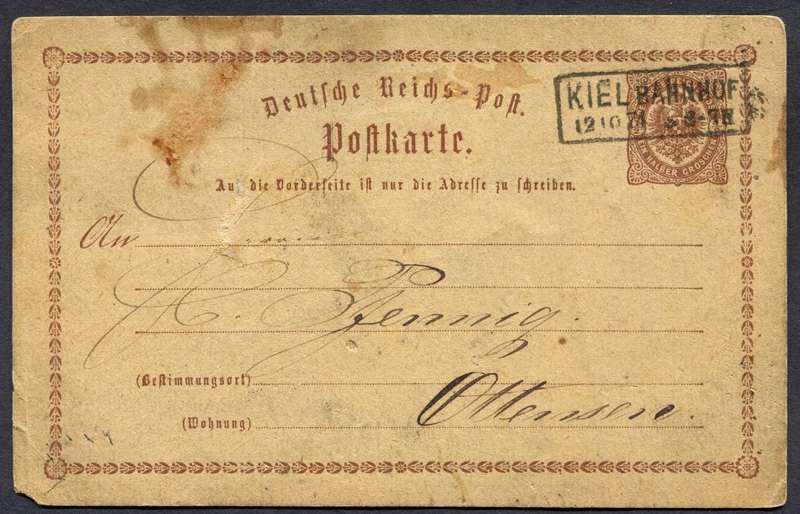 Deutsche Reichs-Post.
Postkarte.
KIEL BAHNHOF
12 10 74
EIN HALBER GROSCHEN
Auf die Vorderseite ist nur die Adresse zu schreiben.
An
Pfennig.
(Bestimmungsort)
Ottensen.
(Wohnung)